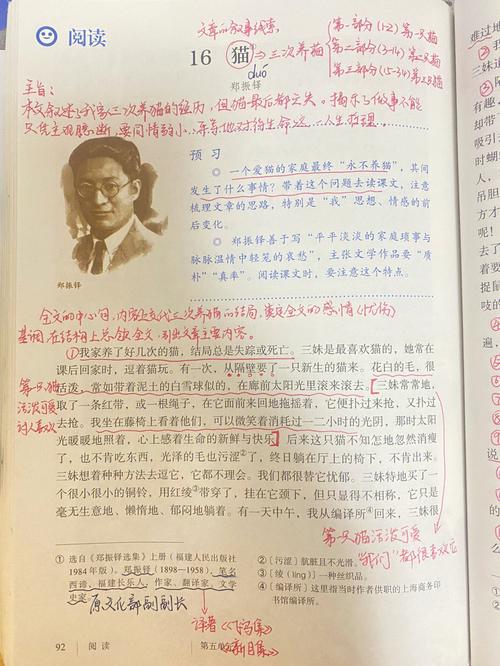 阅读
文章的叙事线索
16 猫 → 三次养猫
第一部分(1-2) 第一只猫
第二部分(3-14) 第二只猫
第三部分(15-34) 第三只猫
duó
郑振铎
主旨:
本文叙述了我家三次养猫的经历,但猫最后都亡失。揭示了做事不能
仅凭主观臆断,要同情弱小、
预 习
◎ 一个爱猫的家庭最终“永不养猫”,其间
发生了什么事情?带着这个问题去读课文,注意
梳理文章的思路,特别是“我”思想、情感的前
后变化。
◎ 郑振铎善于写“平平淡淡的家庭琐事与
脉脉温情中轻笼的哀愁”,主张文学作品要“质
朴”“真率”。阅读课文时,要注意这个特点。
郑振铎
全文的中心句,内容上交代三次养猫的结局,奠定全文的感情(忧伤)
基调,在结构上总领全文,引出文章主要内容。
①我家养了好几次的猫,结局总是失踪或死亡。三妹是最喜欢猫的,她常在
课后回家时,逗着猫玩。有一次,从隔壁要了一只新生的猫来。花白的毛,很
活泼,常如带着泥土的白雪球似的,在廊前太阳光里滚来滚去。三妹常常地,
取了一条红带,或一根绳子,在它面前来回地拖摇着,它便扑过来抢,又扑过
去抢。我坐在藤椅上看着他们,可以微笑着消耗过一二小时的光阴,那时太阳
光暖暖地照着,心上感着生命的新鲜与快乐。后来这只猫不知怎地忽然消瘦
了,也不肯吃东西,光泽的毛也污涩②了,终日躺在厅上的椅下,不肯出来。
三妹想着种种方法去逗它,它都不理会。我们都很替它忧郁。三妹特地买了一
个很小很小的铜铃,用红绫③带穿了,挂在它颈下,但只显得不相称,它只是
毫无生意地、懒惰地、郁闷地躺着。有一天中午,我从编译所④回来,三妹很
第一只猫
活泼可爱
讨人喜欢
第一只猫活泼可爱
“我们”都很喜欢它
① 选自《郑振铎选集》上册(福建人民出版社
1984年版)。郑振铎(1898—1958),笔名
西谛,福建长乐人,作家、翻译家、文学
史家。
原文化部副部长
② 〔污涩〕肮脏且不光滑。
③ 〔绫(líng)〕一种丝织品。
④ 〔编译所〕这里指当时作者供职的上海商务印
书馆编译所。
译著《飞鸟集》
《新月集》
92 阅读 第五单元